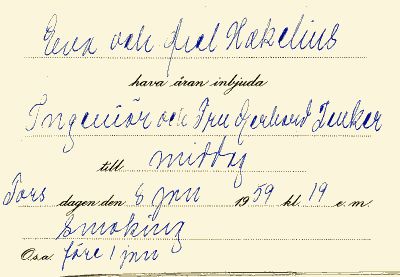 Eva och Axel Hakelius
hava äran inbjuda
Ingeniör och Fru Gerhard Zenker
till middag
Torsdagen den 8 jan 1959 kl. 19 e. m.
Smoking
O.s.a. före 1 jan